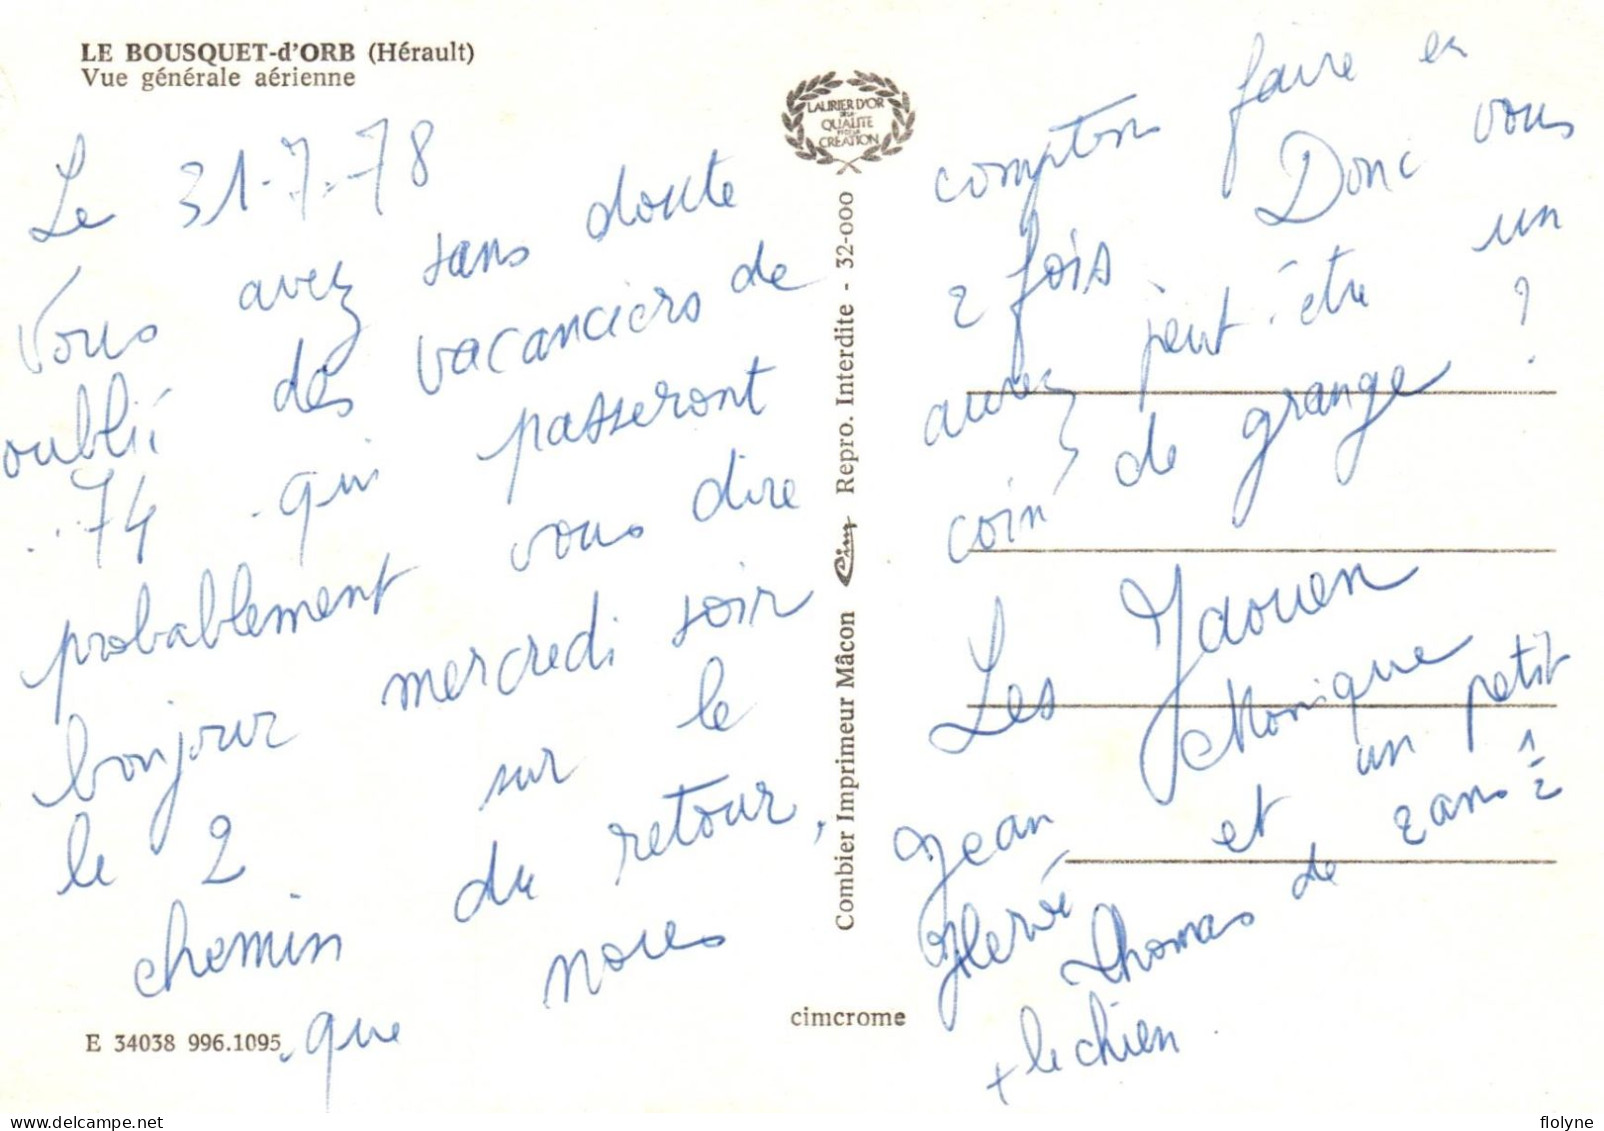 LE BOUSQUET-d'ORB (Hérault)
Vue générale aérienne
Le 31-7-78
Vous avez sans doute
oublié des vacanciers de
74 qui passeront
probablement vous dire
bonjour mercredi soir
le 2 sur le
chemin du retour,
que nous
E 34038 996.1095
LAURIER D'OR
DE LA
QUALITE
ET DE LA
CREATION
Combier Imprimeur Mâcon Cim Repro. Interdite - 32-000
cimcrome
compton faire en
2 fois Donc vous
aurez peut-être un
coin de grange ?
Les Jaouen
Jean Monique
Hervé et un petit
Thomas de 2 ans 1/2
+ le chien.
flolyne